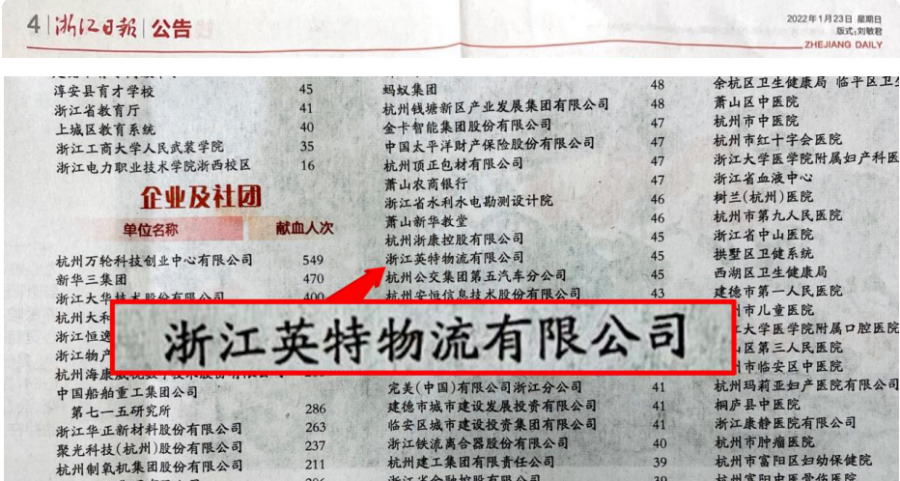 4 浙江日报 公告
2022年1月23日 星期日
版式:刘敏君
ZHEJIANG DAILY
淳安县育才学校 45
浙江省教育厅 41
上城区教育系统 40
浙江工商大学人民武装学院 35
浙江电力职业技术学院浙西校区 16
企业及社团
单位名称 献血人次
杭州万轮科技创业中心有限公司 549
新华三集团 470
浙江大华技术股份有限公司 400
杭州大和
浙江恒逸
浙江物产
杭州海康威视数字技术股份有限公司
中国船舶重工集团公司
第七一五研究所 286
浙江华正新材料股份有限公司 263
聚光科技(杭州)股份有限公司 237
杭州制氧机集团股份有限公司 211
蚂蚁集团 48
杭州钱塘新区产业发展集团有限公司 48
金卡智能集团股份有限公司 47
中国太平洋财产保险股份有限公司 47
杭州顶正包材有限公司 47
萧山农商银行 47
浙江省水利水电勘测设计院 46
萧山新华教堂 46
杭州浙康控股有限公司 45
浙江英特物流有限公司 45
杭州公交集团第五汽车分公司 45
杭州安恒信息技术股份有限公司 43
浙江英特物流有限公司
完美(中国)有限公司浙江分公司 41
建德市城市建设发展投资有限公司 41
临安区城市建设投资集团有限公司 41
浙江铁流离合器股份有限公司 40
杭州建工集团有限责任公司 39
浙江省金融控股有限公司 39
余杭区卫生健康局 临平区卫生
萧山区中医院
杭州市中医院
杭州市红十字会医院
浙江大学医学院附属妇产科医
浙江省血液中心
树兰(杭州)医院
杭州市第九人民医院
浙江省中山医院
拱墅区卫健系统
西湖区卫生健康局
建德市第一人民医院
市儿童医院
大学医学院附属口腔医院
山区第三人民医院
市临安区中医院
杭州玛莉亚妇产医院有限公司
桐庐县中医院
浙江康静医院有限公司
杭州市肿瘤医院
杭州市富阳区妇幼保健院
杭州富阳中医骨伤医院